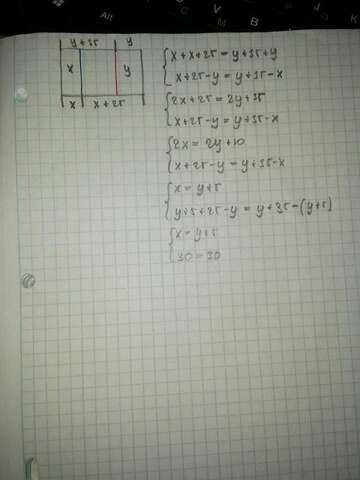 Alt
C
V
M
B
y + 35 y
x y
x x + 25
x + x + 25 = y + 35 + y
x + 25 - y = y + 35 - x
2x + 25 = 2y + 35
x + 25 - y = y + 35 - x
2x = 2y + 10
x + 25 - y = y + 35 - x
x = y + 5
y + 5 + 25 - y = y + 35 - (y + 5)
x = y + 5
30 = 30